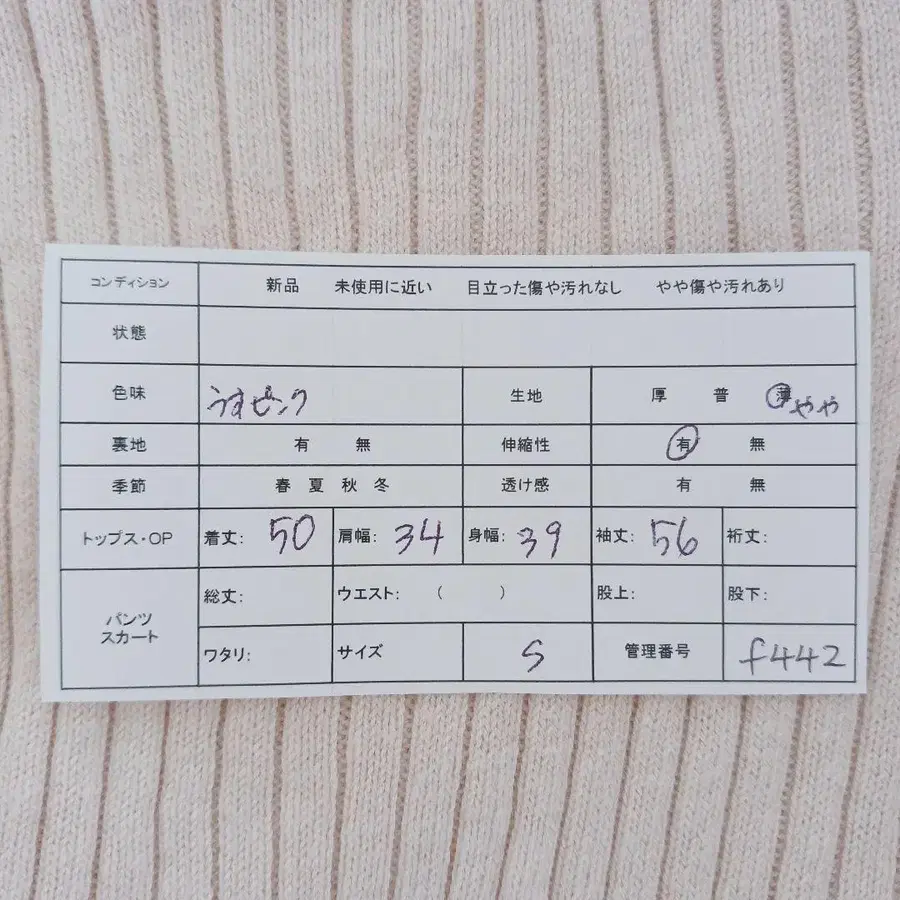 コンディション 新品 未使用に近い 目立った傷や汚れなし やや傷や汚れあり
状態
色味 うすピンク 生地 厚 普 薄 やや
裏地 有 無 伸縮性 有 無
季節 春 夏 秋 冬 透け感 有 無
トップス・OP 着丈: 50 肩幅: 34 身幅: 39 袖丈: 56 裄丈:
パンツ
スカート
総丈: ウエスト: ( ) 股上: 股下:
ワタリ: サイズ S 管理番号 f442